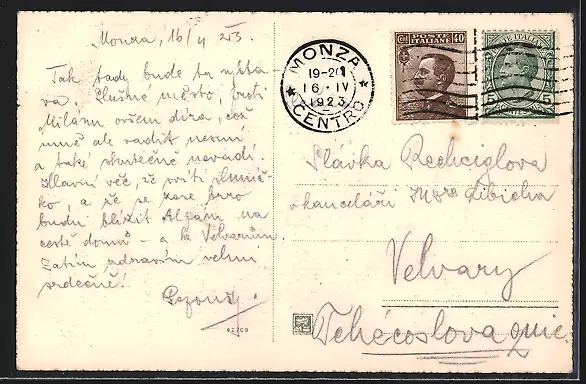 Monza, 16/4 23.
Tak tady bude ta výsta-
va. Slušné město, proti
Milánu ovšem díra, což
mně ale vadit nesmí
a také skutečně nevadí.
Hlavní věc, že svítí sluníč-
ko, a že se zase
budu blížit Alpám na
cestě domů – a k Velvarům
Zatím zdravím velmi
srdečně!
MONZA
19-20
16·IV
1923
CENTRO
POSTE
ITALIANE
Cent 40
POSTE ITALIANE
5 5
Slávka Rechciglova
kanceláři Libicha
Velvary
Tchécoslovaquie